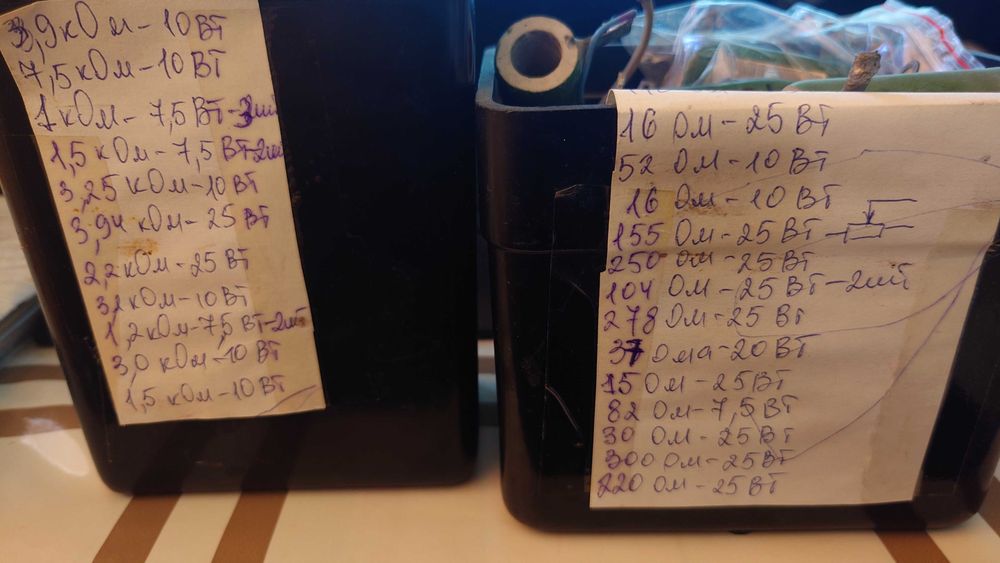 3,9 кОм - 10 Вт
7,5 кОм - 10 Вт
1 кОм - 7,5 Вт - 3шт
1,5 кОм - 7,5 Вт - 2шт
3,25 кОм - 10 Вт
3,94 кОм - 25 Вт
2,2 кОм - 25 Вт
3,1 кОм - 10 Вт
1,2 кОм - 7,5 Вт - 2шт
3,0 кОм - 10 Вт
1,5 кОм - 10 Вт
16 Ом - 25 Вт
52 Ом - 10 Вт
16 Ом - 10 Вт
155 Ом - 25 Вт
250 Ом - 25 Вт
104 Ом - 25 Вт - 2шт
278 Ом - 25 Вт
37 Ома - 20 Вт
15 Ом - 25 Вт
82 Ом - 7,5 Вт
30 Ом - 25 Вт
300 Ом - 25 Вт
220 Ом - 25 Вт